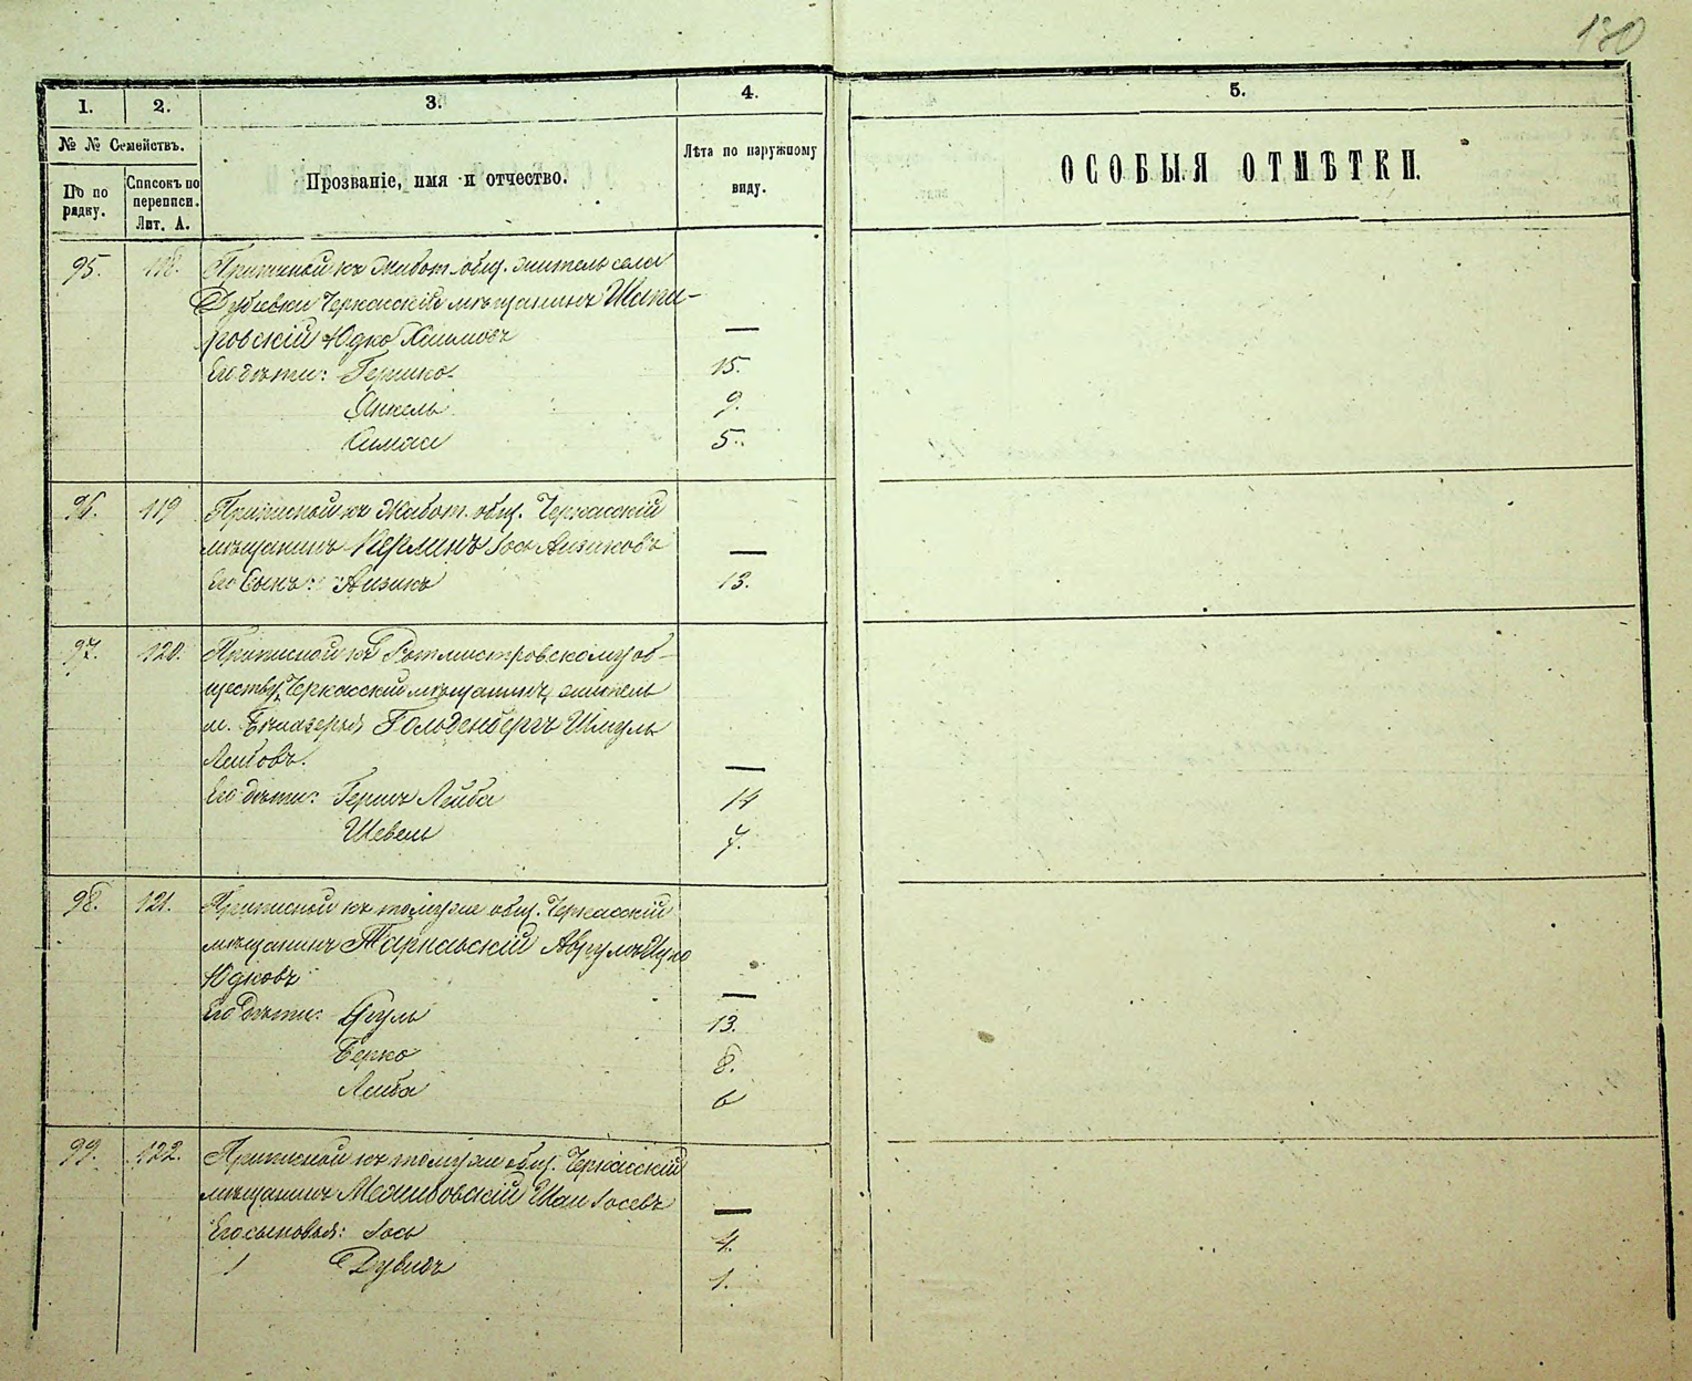 130
1.
2.
3.
4.
5.
№ № Семействъ.
По по
рядку.
Списокъ по
переписи.
Лит. А.
Прозваніе, имя и отчество.
Лѣта по наружному
виду.
ОСОБЫЯ ОТМѢТКИ.
95. 118. Приписной къ Жабот. общ. житель села
Дубіевки Черкасскій мѣщанинъ Шапи-
ровскій Юдко Хаимовъ —
Его дѣти: Гершко 15.
Янкель 9.
Хаимъ 5.
96. 119 Приписной къ Жабот. общ. Черкасскій
мѣщанинъ Перлинъ Іось Аизиковъ —
Его Сынъ: Аизикъ 13.
97. 120. Приписной къ Ротмистровскому об-
ществу Черкасский мѣщанинъ, житель
м. Бѣлозерья, Гольденбергъ Шмуль
Лейбовъ. —
Его дѣти: Гершъ Лейба 14
Шевель 7.
98. 121. Приписной къ тому же общ. Черкасскій
мѣщанинъ Аврумъ Ицко
Юдковъ —
Его Дѣти: Сруль 13.
Берко 8.
Лейба 6
99. 122. Приписной къ тому же общ. Черкасский
мѣщанинъ Межибовскій Іосевъ —
Его сыновья: Іось 4.
Дувидъ 1.